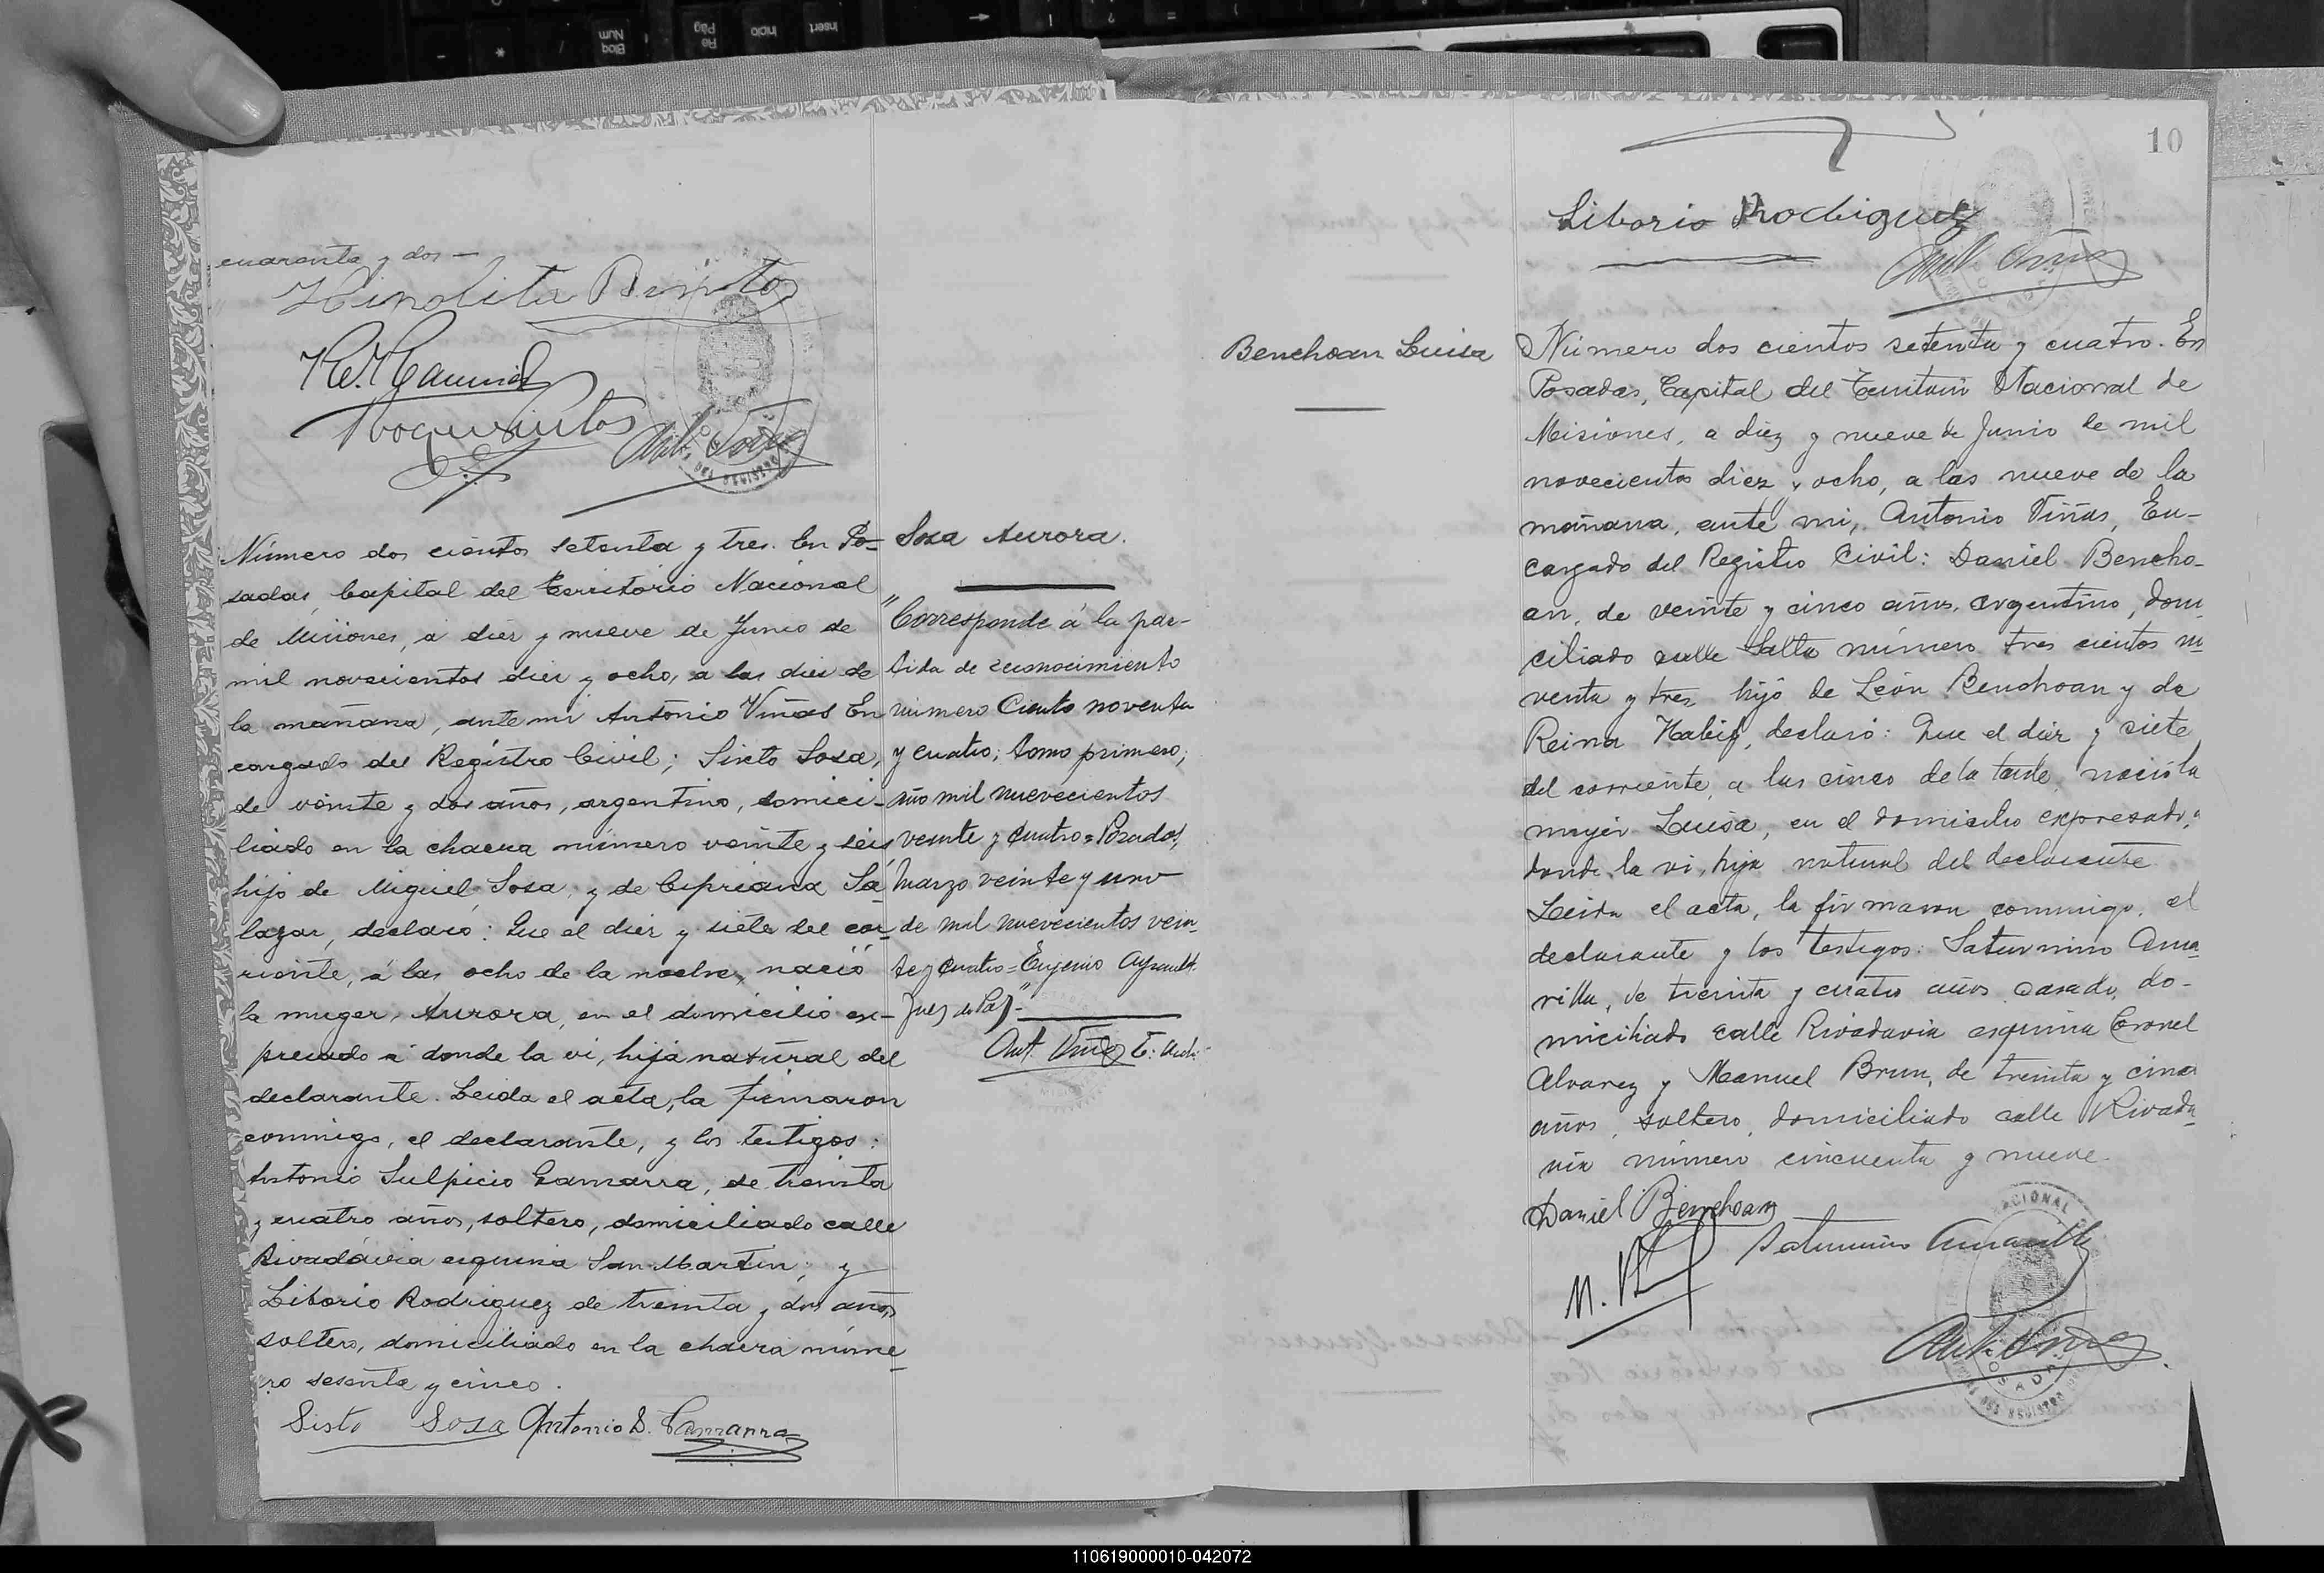 cuarenta y dos —
Número dos cientos setenta y tres. En Po-
sadas, Capital del Territorio Nacional
de Misiones, a diez y nueve de Junio de
mil novecientos diez y ocho, a las diez de
la mañana, ante mi Antonio Viñas En
cargado del Registro Civil; Sixto Sosa,
de veinte y dos años, argentino, domici-
liado en la chacra número veinte y seis
hijo de Miguel Sosa, y de Cipriana Sa-
lazar, declaró: Que el diez y siete del cor-
riente, á las ocho de la noche, nació
la muger, Aurora, en el domicilio ex-
presado a donde la vi, hija natural del
declarante. Leida el acta, la firmaron
conmigo, el declarante, y los testigos:
Antonio Sulpicio Gamarra, de treinta
y cuatro años, soltero, domiciliado calle
Rivadavia esquina San Martin; y
Liborio Rodriguez de treinta y dos años
soltero, domiciliado en la chacra núme-
ro sesenta y cinco.
Sisto Sosa Antonio S. Gamarra
Sosa Aurora.
"Corresponde á la par-
tida de reconocimiento
número Ciento noventa
y cuatro; tomo primero;
año mil nuevecientos
veinte y cuatro = Posadas,
Marzo veinte y uno
de mil nuevecientos vein-
te y cuatro = Eugenio
Juez de Paz"
Ant. Viñas
10
Liborio Rodriguez
Ant. Viñas
Benchoan Luisa
Número dos cientos setenta y cuatro. En
Posadas, Capital del Territorio Nacional de
Misiones, a diez y nueve de Junio de mil
novecientos diez y ocho, a las nueve de la
mañana, ante mi, Antonio Viñas, En-
cargado del Registro Civil: Daniel Bencho-
an, de veinte y cinco años, argentino, domi
ciliado calle Salta número tres cientos no
venta y tres hijo de León Benchoan y de
Reina, declaró: Que el diez y siete
del corriente, a las cinco de la tarde, nació la
mujer Luisa, en el domicilio expresado, a
donde la vi, hija natural del declarante
Leida el acta, la firmaron conmigo, el
declarante y los testigos: Saturnino Ama
rilla, de treinta y cuatro años casado, do-
miciliado calle Rivadavia esquina Coronel
Alvarez y Manuel Brun, de treinta y cinco
años, soltero, domiciliado calle Rivada
via número cincuenta y nueve.
Daniel Benchoan
Saturnino Amarilla
Ant. Viñas
110619000010-042072